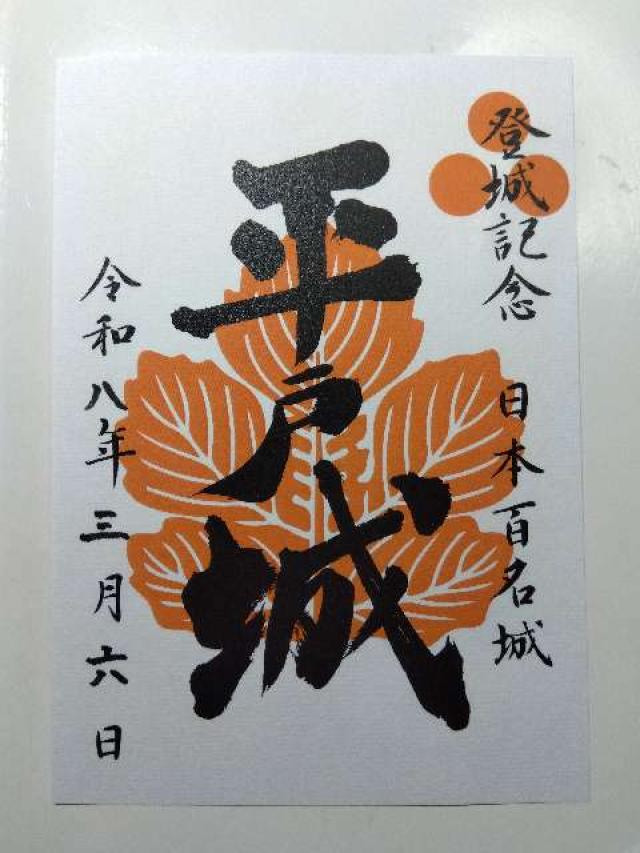 登城記念
日本百名城
平戸城
令和八年三月六日